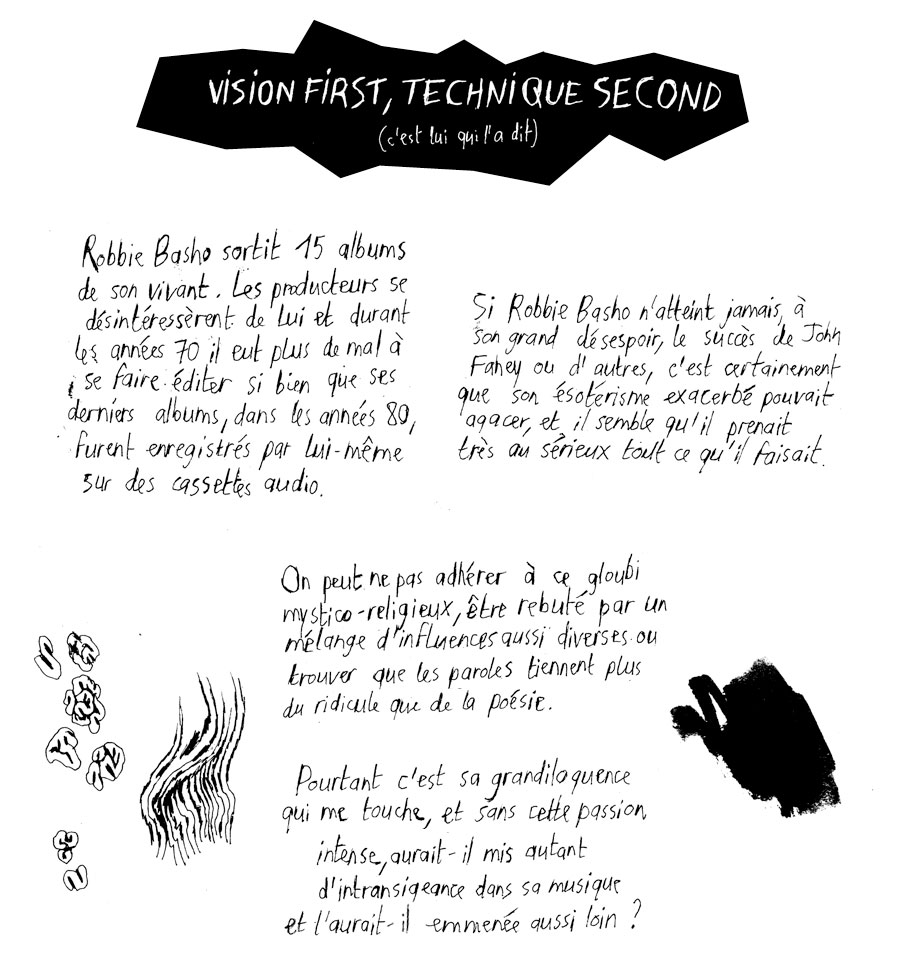 VISION FIRST, TECHNIQUE SECOND
(c'est lui qui l'a dit)
Robbie Basho sortit 15 albums
de son vivant. Les producteurs se
désintéressèrent de lui et durant
les années 70 il eut plus de mal à
se faire éditer si bien que ses
derniers albums, dans les années 80,
furent enregistrés par lui-même
sur des cassettes audio.
Si Robbie Basho n'atteint jamais, à
son grand désespoir, le succès de John
Fahey ou d'autres, c'est certainement
que son ésotérisme exacerbé pouvait
agacer, et il semble qu'il prenait
très au sérieux tout ce qu'il faisait.
On peut ne pas adhérer à ce gloubi
mystico-religieux, être rebuté par un
mélange d'influences aussi diverses ou
trouver que les paroles tiennent plus
du ridicule que de la poésie.
Pourtant c'est sa grandiloquence
qui me touche, et sans cette passion
intense, aurait-il mis autant
d'intransigeance dans sa musique
et l'aurait-il emmenée aussi loin ?